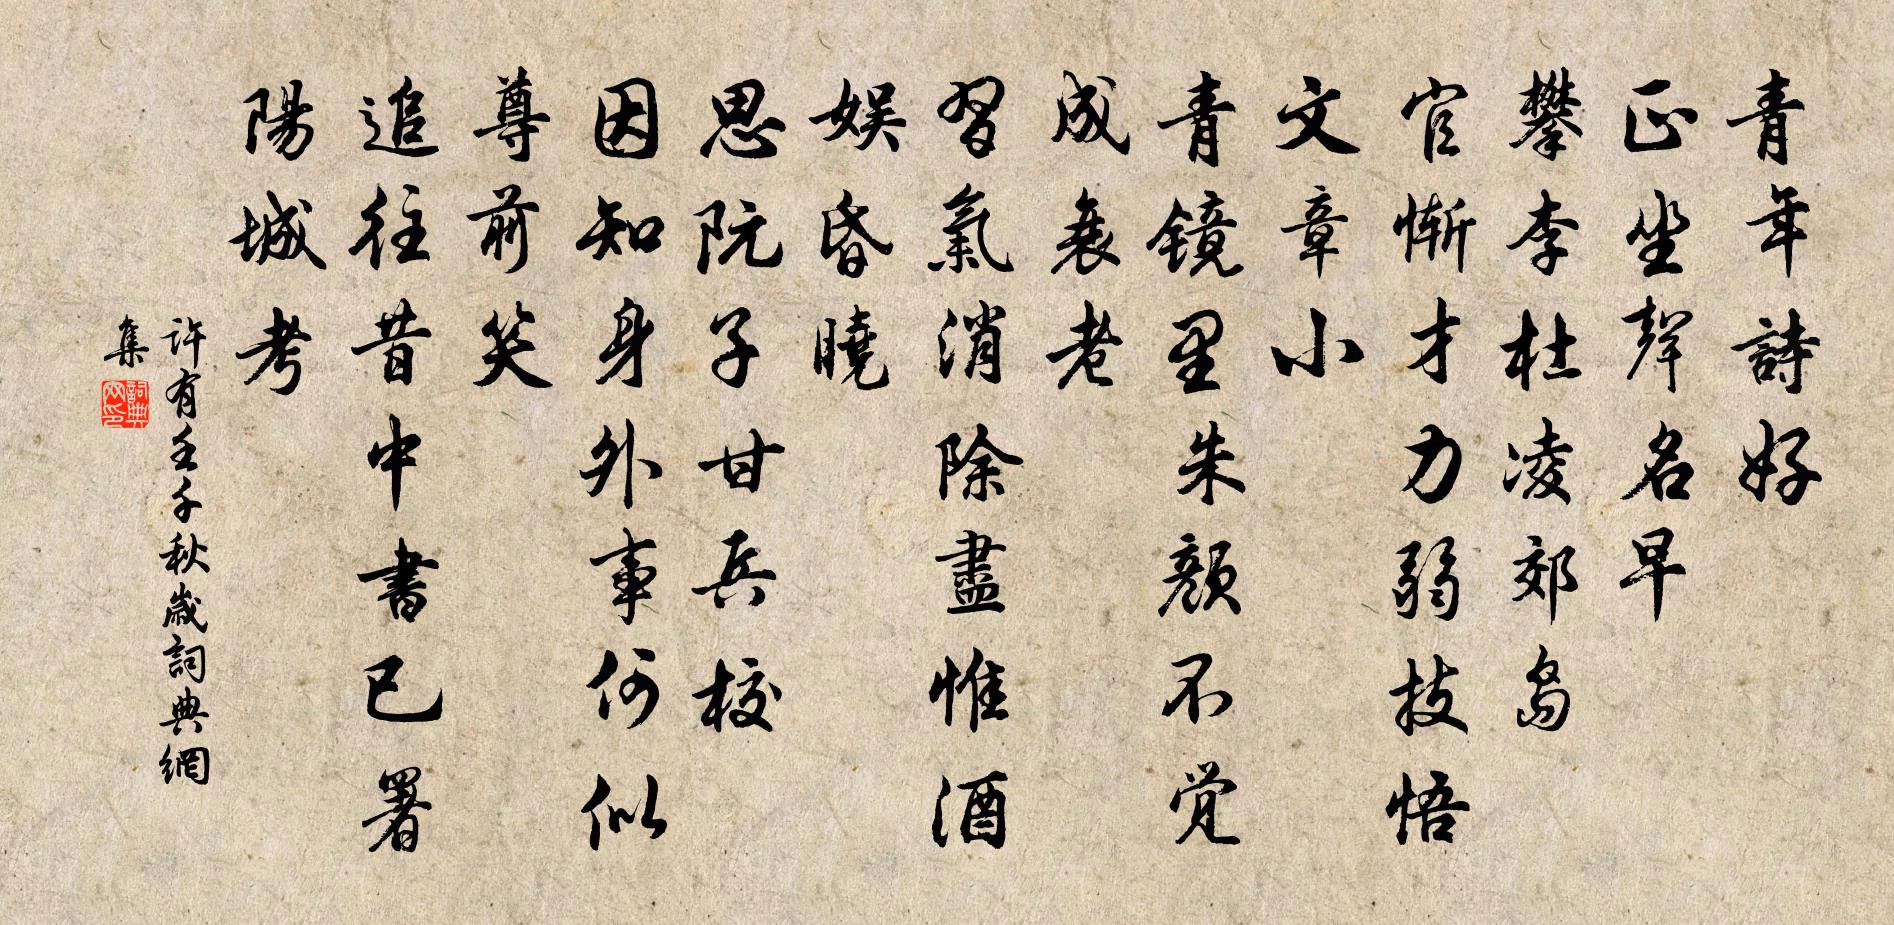 青年詩好
正坐聲名早
攀李杜凌郊島
官慚才力弱技悟
文章小
青鏡里朱顏不覺
成衰老
習氣消除盡惟酒
娛昏曉
思阮子甘兵校
因知身外事何似
尊前笑
追往昔中書已署
陽城考
許有壬千秋歲詞典網
集
詞典
网印